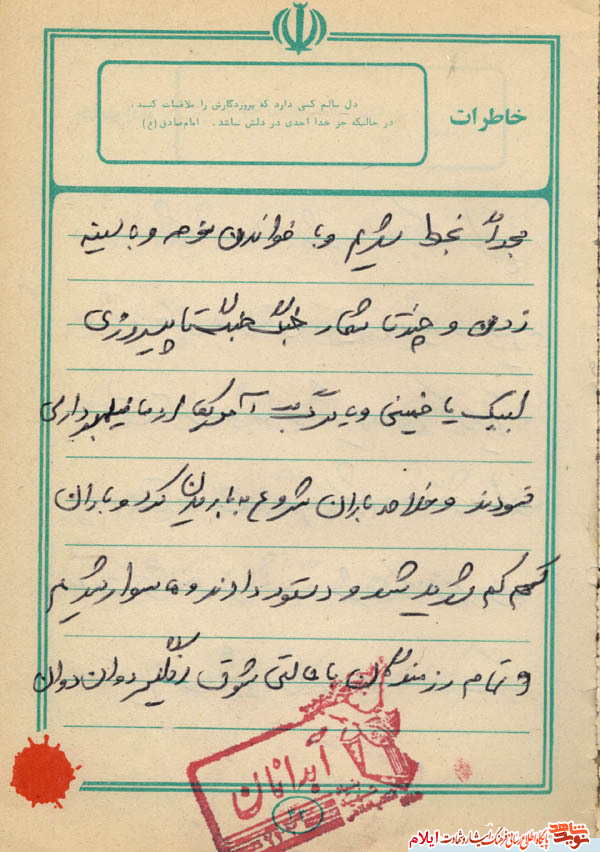 خاطرات
دل سالم کسی دارد که پروردگارش را ملاقات کند ،
در حالیکه جز خدا احدی در دلش نباشد . امام صادق (ع)
مجدداً بخط شدیم و با خواندن نوحه و به سینه
زدن و چند تا شعار جنگ جنگ تا پیروزی
لبیک یا خمینی و یا مرگ بر آمریکا از ما فیلمبرداری
نمودند و خلاصه باران شروع به باریدن کرد و باران
کم کم شدید شد و دستور دادند و ما سوار شدیم
و تمام رزمندگان با حالتی شوق انگیز دوان دوان
آبدانان
نوید شاهد
پایگاه اطلاع رسانی فرهنگ ایثار و شهادت ایلام